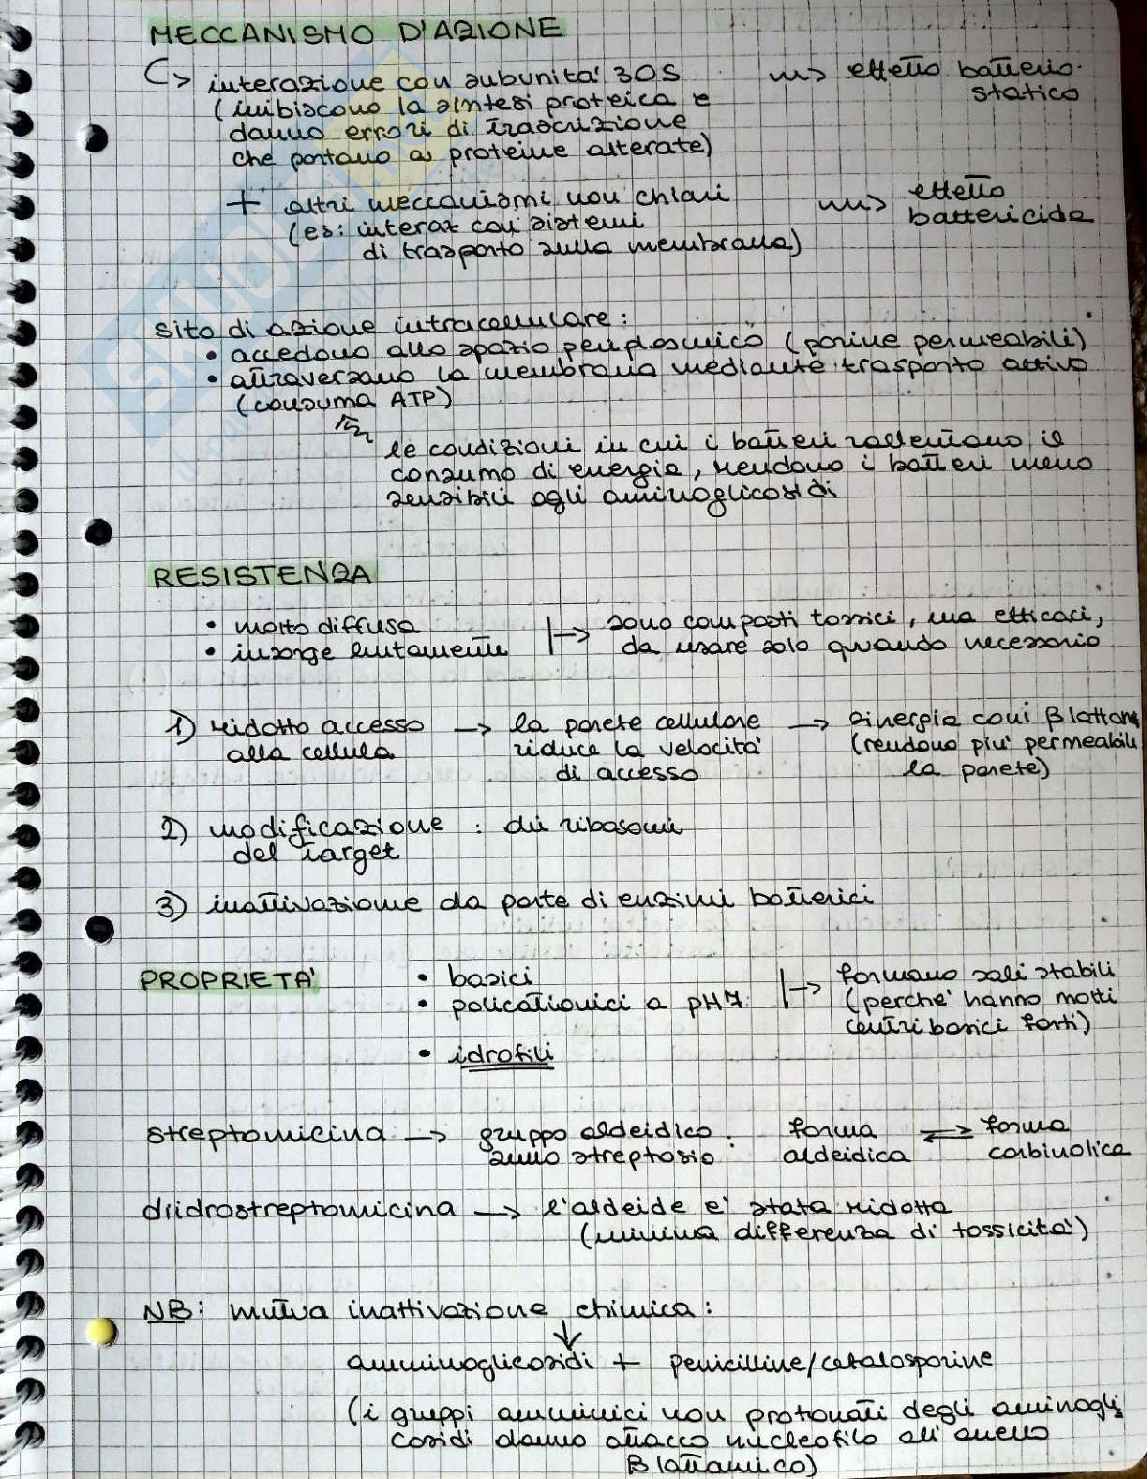 MECCANISMO D'AZIONE
↳ interazione con subunità 30S ⟿ effetto batterio-
(inibiscono la sintesi proteica e statico
danno errori di trascrizione
che portano a proteine alterate)
+ altri meccanismi non chiari ⟿ effetto
(es: interaz con sistemi battericida
di trasporto sulla membrana)
sito di azione intracellulare:
• accedono allo spazio periplasmico (porine permeabili)
• attraversano la membrana mediante trasporto attivo
(consuma ATP)
le condizioni in cui i batteri rallentano il
consumo di energia, rendono i batteri meno
sensibili agli aminoglicosidi
RESISTENZA
• molto diffusa |→ sono composti tossici, ma efficaci,
• insorge lentamente da usare solo quando necessario
1) ridotto accesso → la parete cellulare → sinergia coni βlattam
alla cellula riduce la velocità (rendono più permeabile
di accesso la parete)
2) modificazione : dei ribosomi
del target
3) inattivazione da parte di enzimi batterici
PROPRIETA' • basici |→ formano sali stabili
• policationici a pH7 (perchè hanno molti
centri basici forti)
• idrofili
streptomicina → gruppo aldeidico : forma ⇌ forma
sullo streptosio aldeidica carbinolica
diidrostreptomicina → l'aldeide e' stata ridotta
(minima differenza di tossicità)
NB: mutua inattivazione chimica:
↓
amminoglicosidi + penicilline/cefalosporine
(i gruppi amminici non protonati degli aminogli
cosidi danno attacco nucleofilo all'anello
βlattamico)